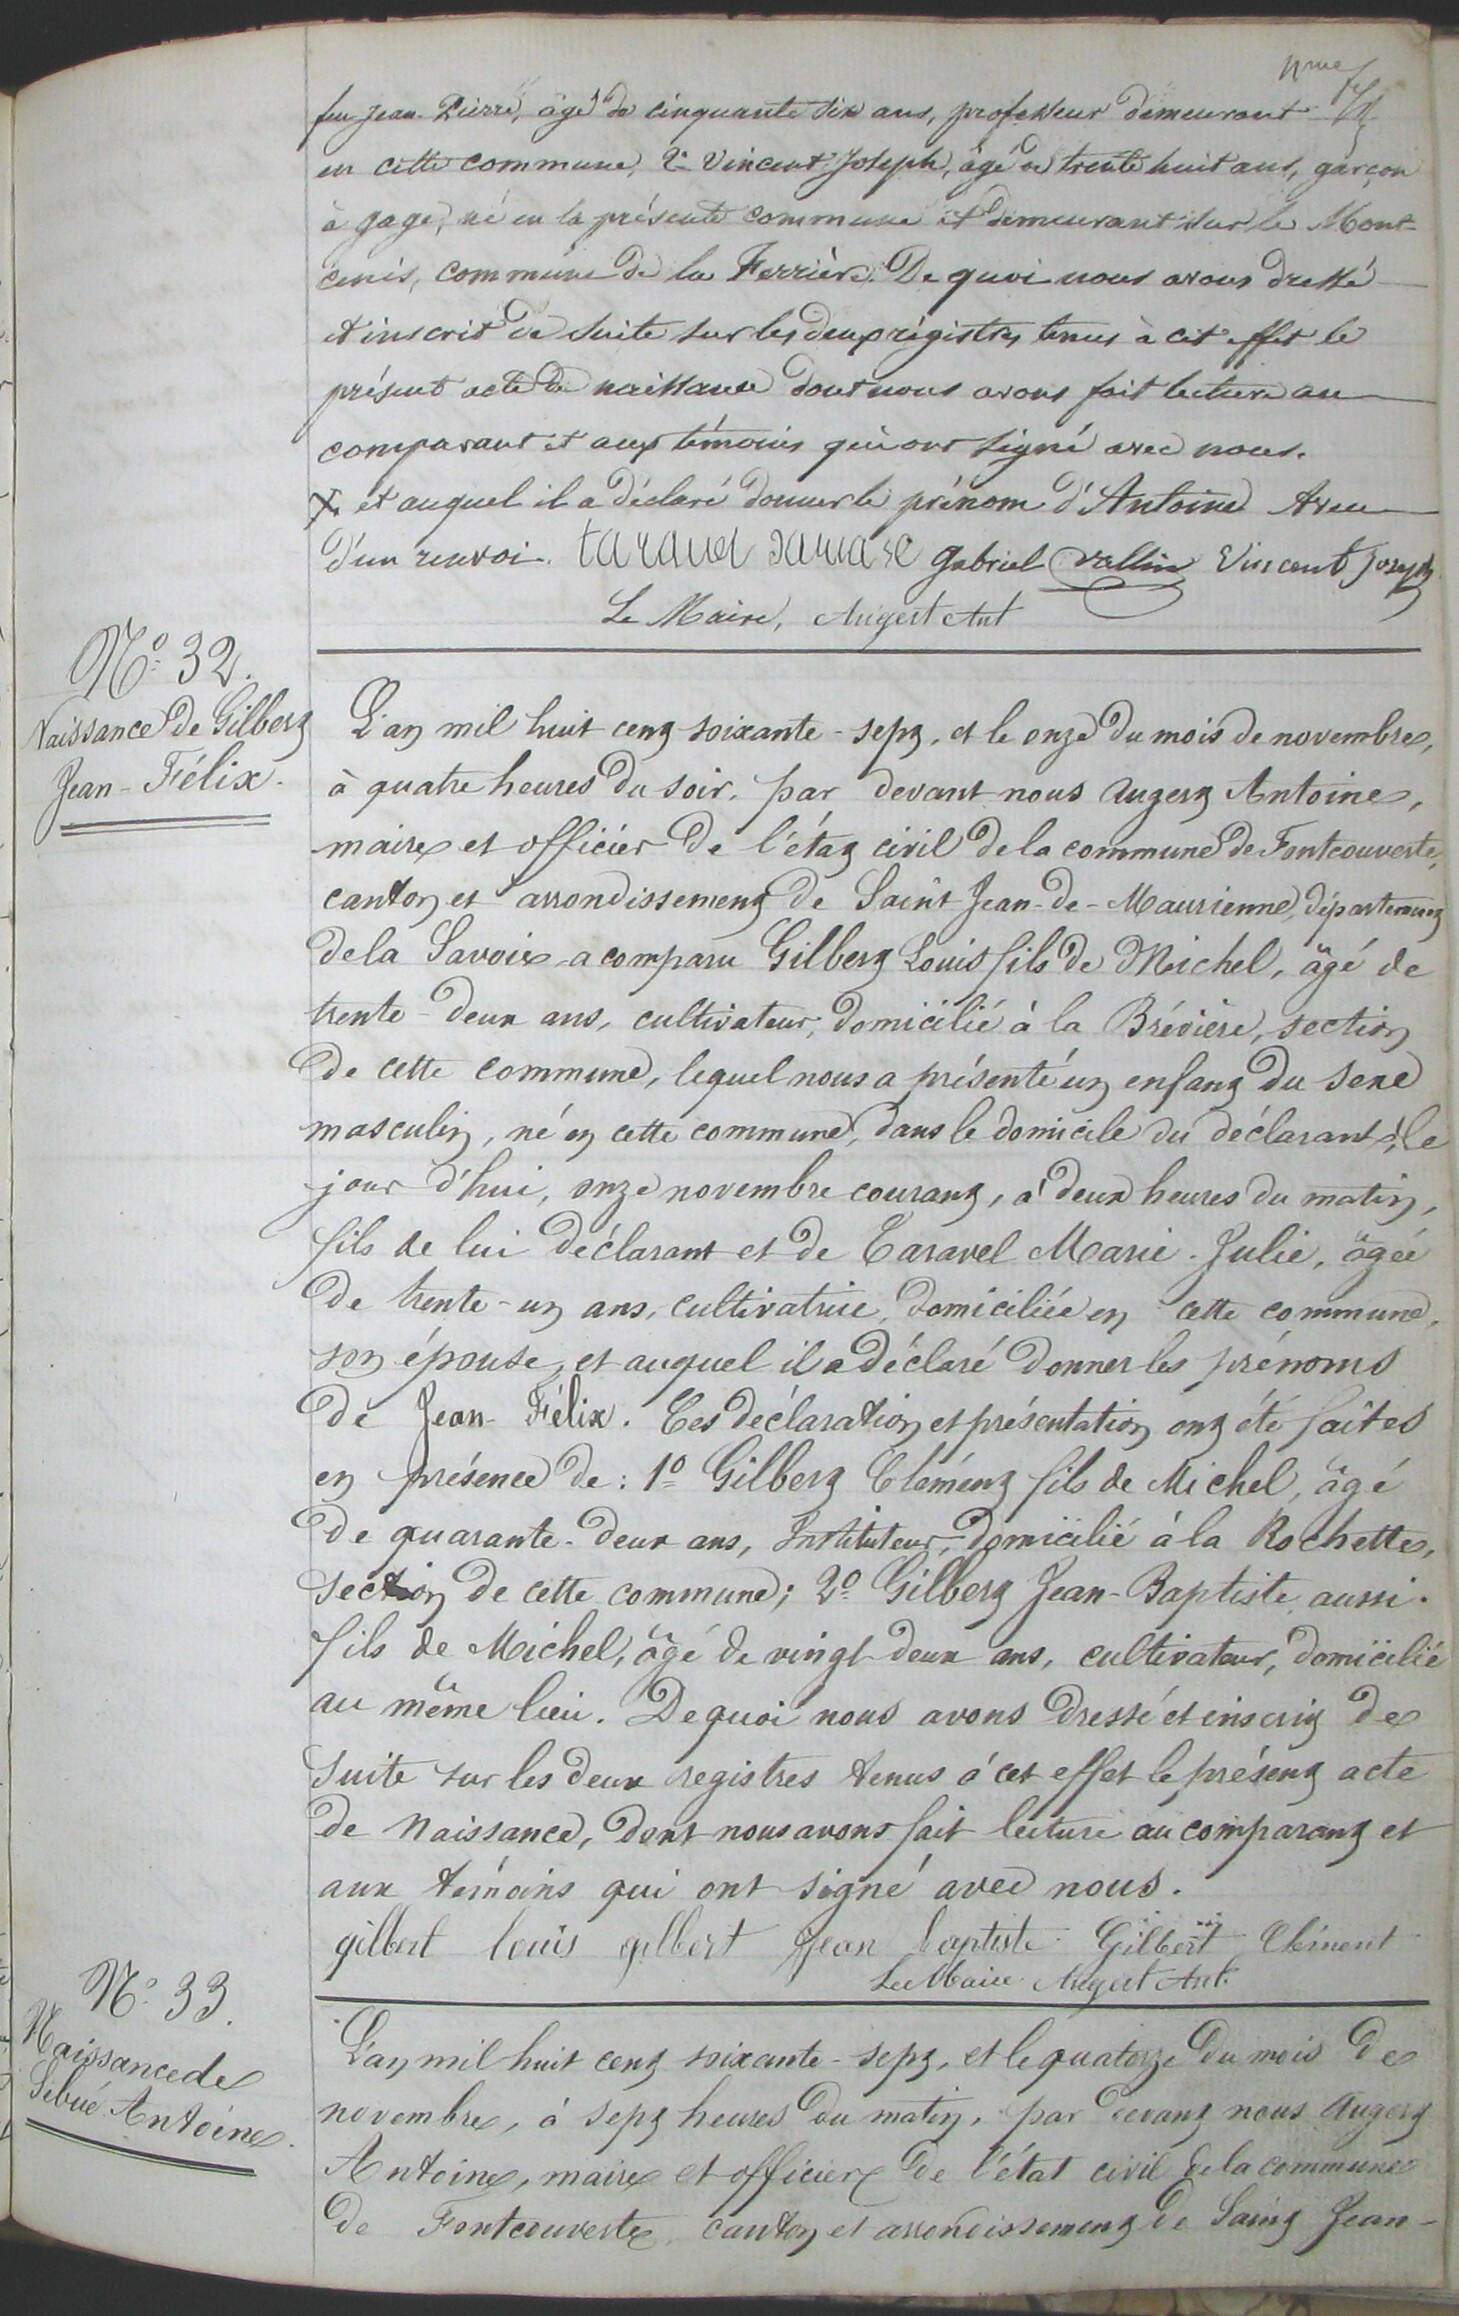 feu Jean Pierre, âgé de cinquante six ans, professeur demeurant
en cette commune, 2° Vincent Joseph, âgé de trente huit ans, garçon
à gage, né en la présente commune et demeurant sur le Mont-
cenis, commune de la Ferrière. De quoi nous avons dressé
et inscrit de suite sur les deux régistres tenus à cet effet le
présent acte de naissance dont nous avons fait lecture au
comparant et aux témoins qui ont signé avec nous.
X et auquel il a déclaré donner le prénom d'Antoine Aveu
d'un renvoi. taravel Gabriel Vallin Vincent Joseph
Le Maire, Augert Ant
N° 32.
Naissance de Gilbert
Jean-Félix.
L'an mil huit cent soixante-sept, et le onze du mois de novembre,
à quatre heures du soir, par devant nous Augert Antoine,
maire et officier de l'état civil de la commune de Fontcouverte,
canton et arrondissement de Saint Jean-de-Maurienne, département
de la Savoie a comparu Gilbert Louis fils de Michel, âgé de
trente-deux ans, cultivateur, domicilié à la Brévière, section
de cette commune, lequel nous a présenté un enfant du sexe
masculin, né en cette commune, dans le domicile du déclarant, le
jour d'hui, onze novembre courant, à deux heures du matin,
fils de lui déclarant et de Taravel Marie-Julie, âgée
de trente-un ans, cultivatrice, domiciliée en cette commune,
son épouse, et auquel il a déclaré donner les prénoms
de Jean-Félix. Ces déclaration et présentation ont été faites
en présence de: 1° Gilbert Clément fils de Michel, âgé
de quarante-deux ans, Instituteur, domicilié à la Rochette,
section de cette commune; 2° Gilbert Jean-Baptiste aussi
fils de Michel, âgé de vingt-deux ans, cultivateur, domicilié
au même lieu. De quoi nous avons dressé et inscrit de
suite sur les deux registres tenus à cet effet le présent acte
de Naissance, dont nous avons fait lecture au comparant et
aux témoins qui ont signé avec nous.
gilbert louis gilbert jean baptiste Gilbert Clément
Le Maire Augert Ant.
N° 33.
Naissance de
Sibué Antoine.
L'an mil huit cent soixante-sept, et le quatorze du mois de
novembre, à sept heures du matin, par devant nous Augert
Antoine, maire et officier de l'état civil de la commune
de Fontcouverte, canton et arrondissement de Saint Jean-